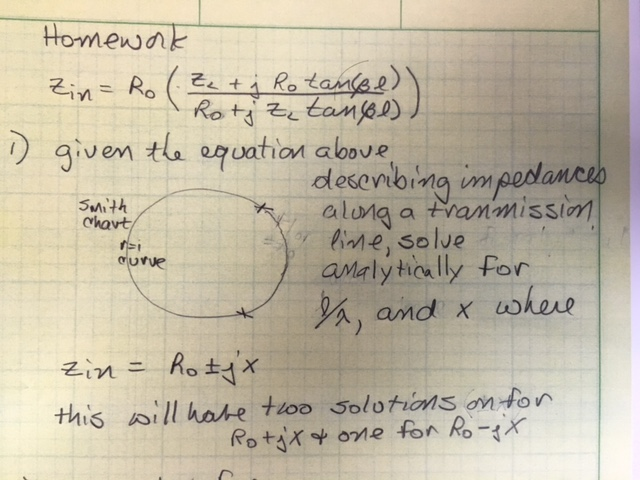 Homework
Zin = R₀ ( (Z_L + j R₀ tan(βl)) / (R₀ + j Z_L tan(βl)) )
1) given the equation above
describing impedances
along a tranmission
line, solve
analytically for
l/λ, and x where
Smith
Chart
r=1
curve
Zin = R₀ ± jX
this will have two solutions on for
R₀+jX & one for R₀-jX